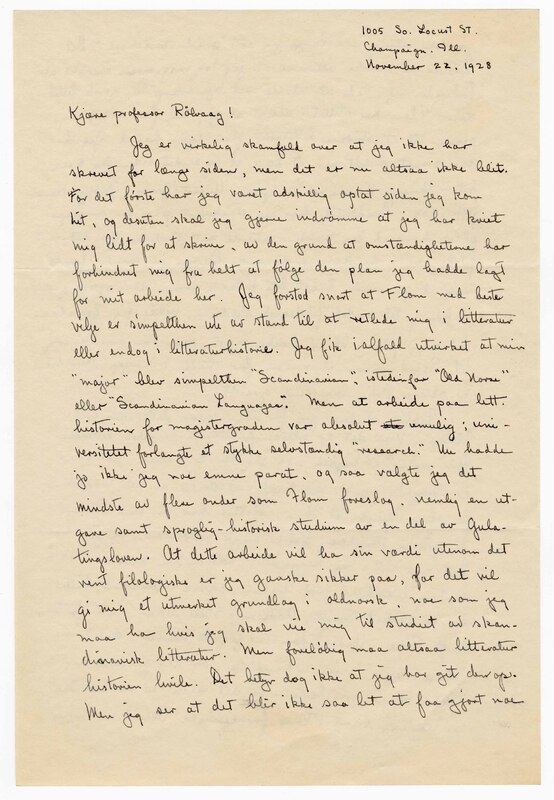 1005 So. Locust St.
Champaign. Ill.
November 22, 1928
Kjære professor Rölvaag!
Jeg er virkelig skamfuld over at jeg ikke har
skrevet for længe siden, men det er nu altsaa ikke blit.
For det förste har jeg været adskillig optat siden jeg kom
hit, og desuten skal jeg gjerne indrömme at jeg har kviet
mig lidt for at skrive, av den grund at omstændigheterne har
forhindret mig fra helt at fölge den plan jeg hadde lagt
for mit arbeide her. Jeg forstod snart at Flom med beste
vilje er simpelthen ute av stand til at veilede mig i litteratur
eller endog i litteraturhistorie. Jeg fik ialfald utvirket at min
"major" blev simpelthen "Scandinavian", istedenfor "Old Norse"
eller "Scandinavian Languages". Men at arbeide paa litt.
historien for magistergraden var absolut umulig; uni-
versitetet forlangte et stykke selvstændig "research." Nu hadde
jo ikke jeg noe emne parat, og saa valgte jeg det
mindste av flere onder som Flom foreslog, nemlig en ut-
gave samt sproglig-historisk studium av en del av Gula-
tingsloven. At dette arbeide vil ha sin værdi utenom det
rent filologiske er jeg ganske sikker paa, for det vil
gi mig et utmerket grundlag i oldnorsk, noe som jeg
maa ha hvis jeg skal vie mig til studiet av skan-
dinavisk litteratur. Men foreløbig maa altsaa litteratur
historien hvile. Det betyr dog ikke at jeg har git den op.
Men jeg ser at det blir ikke saa let at faa gjort noe